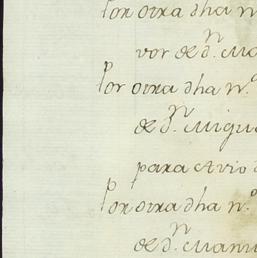 Por otra dha n
vor de dⁿ. Ma
Por otra dha n.º
de dⁿ. Migu
para Avio
Por otra dha n.º
de dⁿ. Manu